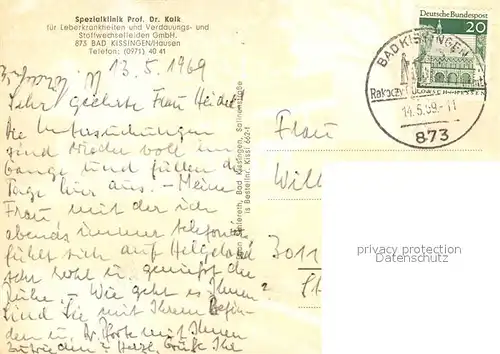 Spezialklinik Prof. Dr. Kalk
für Leberkrankheiten und Verdauungs- und
Stoffwechselleiden GmbH.
873 BAD KISSINGEN/Hausen
Telefon: (0971) 40 41
13.5.1969
Sehr geehrte Frau
Die Untersuchungen
sind wieder voll im
Gange und füllen die
Tage hier aus. – Meine
Frau mit der ich
abends immer telefoniere
fühlt sich auf Helgoland
sehr wohl u. genießt die
Ruhe – Wie geht es Ihnen?
Sind Sie mit Ihrem Befin-
den u. Dr. mit Ihnen
zufrieden? Herzl. Grüße Ihr
Bad Kissingen, Salinenstraße
Bestellnr. Kissi 662-1
Deutsche Bundespost
20
BAD KISSINGEN
Rakoczy
14.5.69-11
873
Frau
Will
3011
privacy protection
Datenschutz